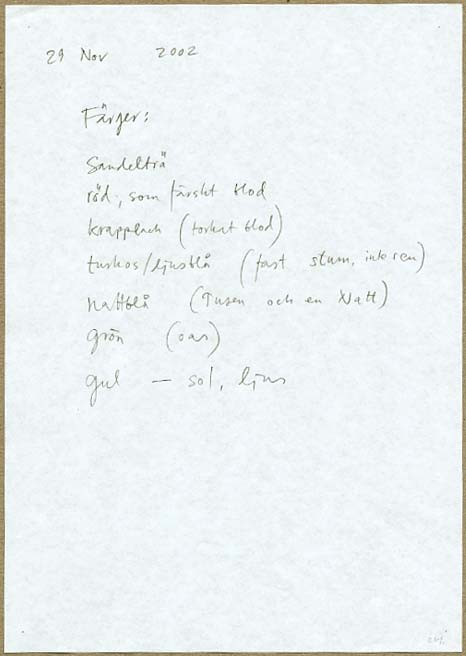 29 Nov 2002
Färger:
Sandelträ
röd, som färskt blod
krapplack (torkat blod)
turkos/ljusblå (fast stum, inte ren)
nattblå (Tusen och en Natt)
grön (oas)
gul — sol, ljus